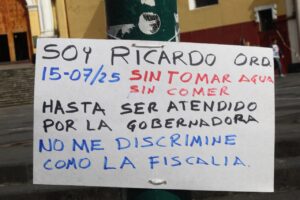 SOY RICARDO ORD
15-07/25 SIN TOMAR AGUA
SIN COMER
HASTA SER ATENDIDO
POR LA GOBERNADORA
NO ME DISCRIMINE
COMO LA FISCALIA.